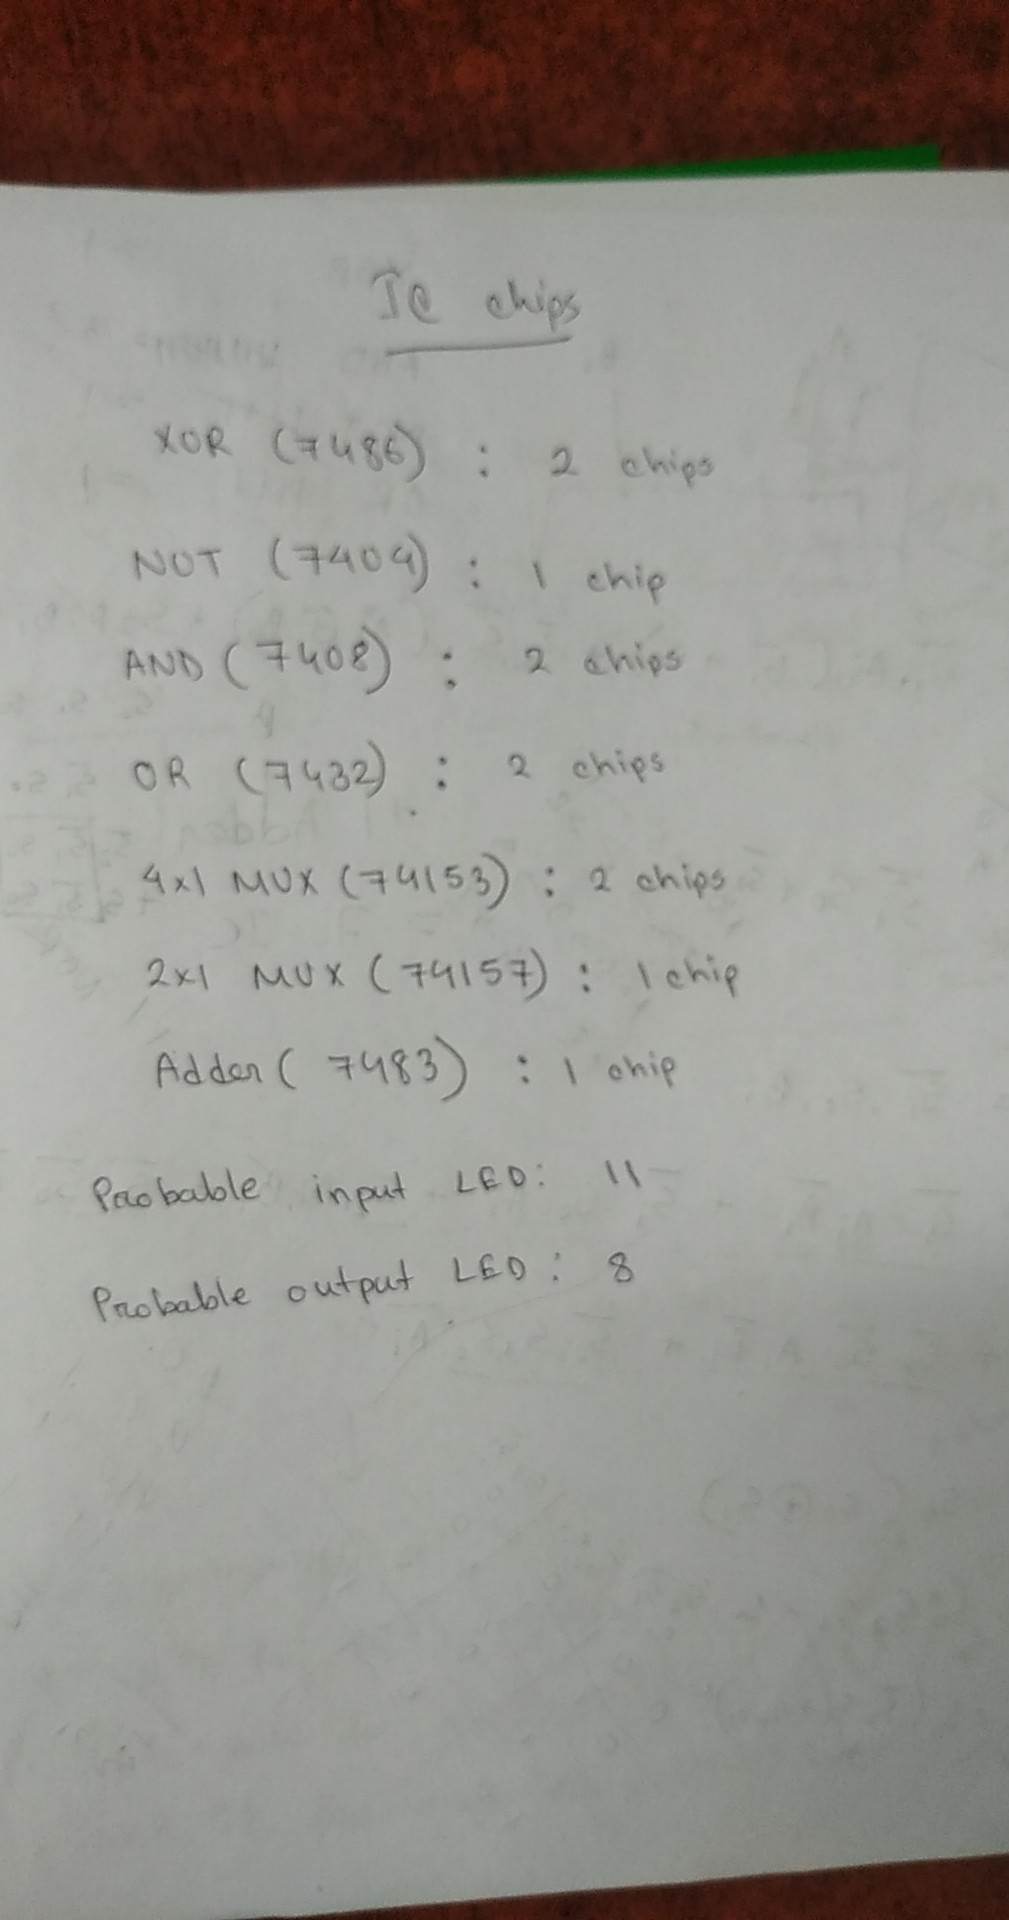 IC chips
XOR (7486) : 2 chips
NOT (7404) : 1 chip
AND (7408) : 2 chips
OR (7432) : 2 chips
4x1 MUX (74153) : 2 chips
2x1 MUX (74157) : 1 chip
Adder (7483) : 1 chip
Probable input LED : 11
Probable output LED : 8